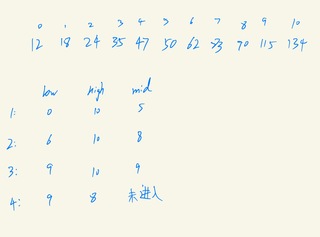 0 1 2 3 4 5 6 7 8 9 10
12 18 24 35 47 50 62 73 90 115 134
low high mid
1: 0 10 5
2: 6 10 8
3: 9 10 9
4: 9 8 未进入